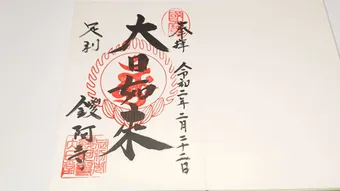 奉拝
令和二年二月二十二日
大日如来
足利
鑁阿寺